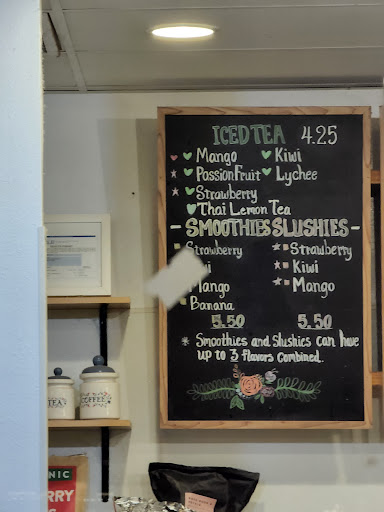 ICED TEA 4.25
Mango Kiwi
PassionFruit Lychee
Strawberry
Thai Lemon Tea
- SMOOTHIES SLUSHIES -
Strawberry Strawberry
Kiwi
Mango Mango
Banana
5.50 5.50
* Smoothies and Slushies can have
up to 3 flavors combined.
TEA COFFEE
NIC
RRY